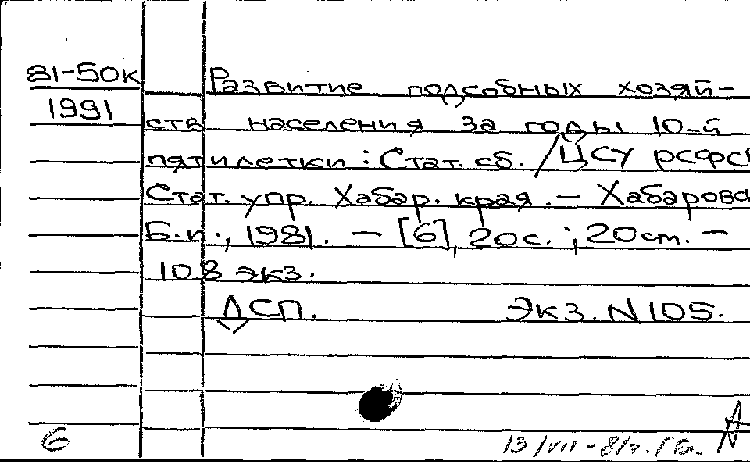 81-50к
1991
Развитие подсобных хозяй-
ств населения за годы 10-й
пятилетки : Стат. сб. / ЦСУ РСФСР
Стат. упр. Хабар. края. – Хабарова
Б.и., 1981. – [6], 20с. ; 20см. –
108 экз.
ДСП. Экз. N 105.
6